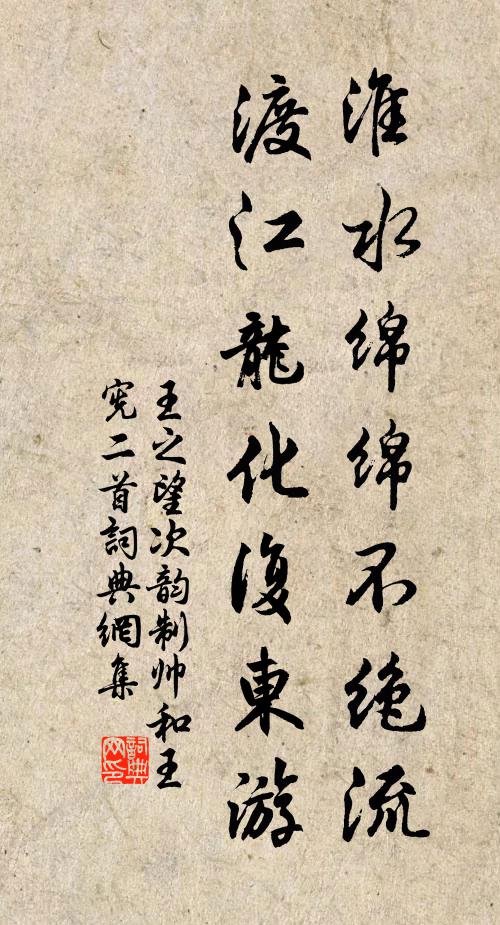 淮水綿綿不绝流
渡江龍化復東游
王之望次韵制帅和王
宪二首詞典網集
詞典网印